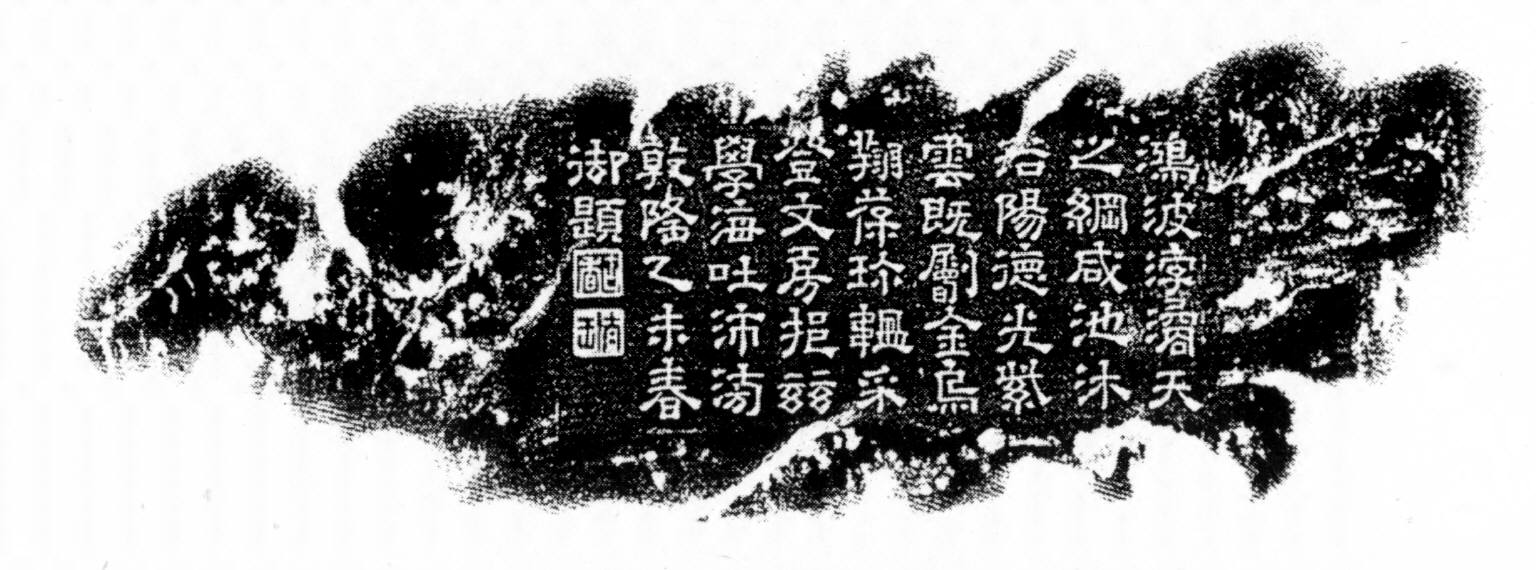 鴻波渟濬天
之綱咸池沐
浴陽德光紫
雲既劚金烏
翔葆珍韞采
登文房挹茲
學海吐沛滂
乾隆乙未春
御題